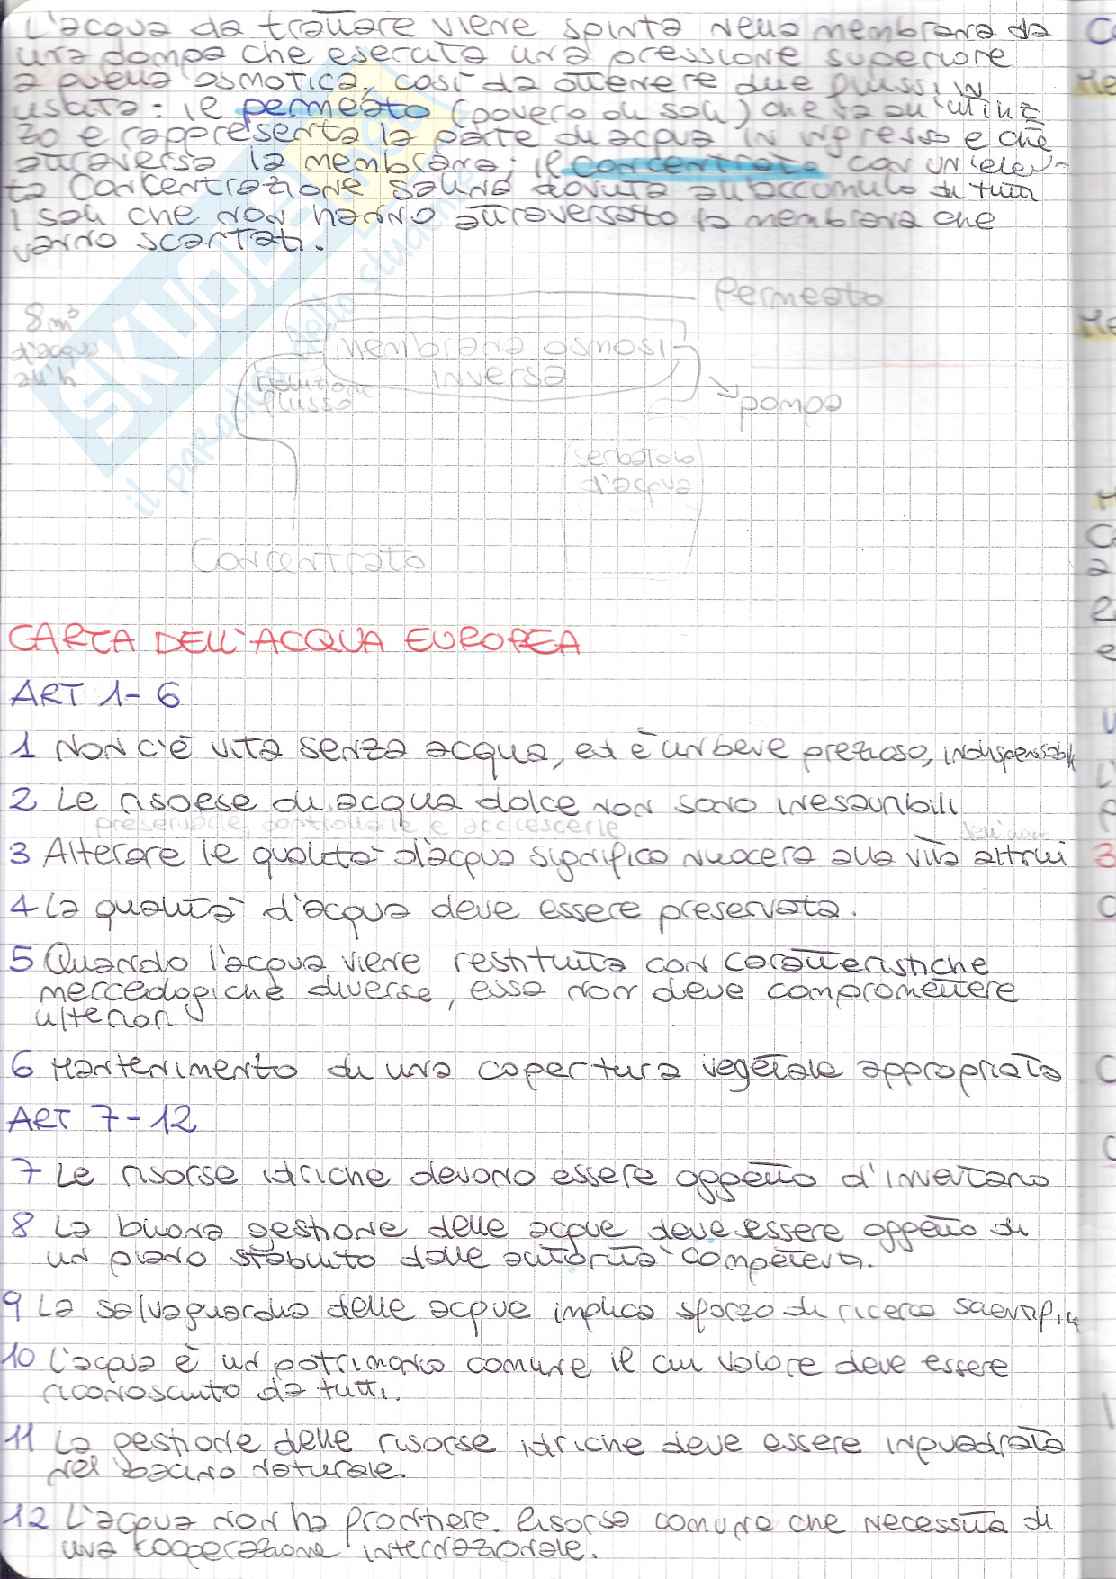 L'acqua da trattare viene spinta nella membrana da
una pompa che esercita una pressione superiore
a quella osmotica, così da ottenere due flussi in
uscita: il permeato (povero di sali) che va all'utiliz
zo e rappresenta la parte di acqua in ingresso e che
attraversa la membrana; il concentrato con un'eleva-
ta concentrazione salina dovuta all'accumulo di tutti
i sali che non hanno attraversato la membrana che
vanno scartati.
Permeato
8 m³
d'acqua
all'h
membrana osmosi
inversa
flusso
pompa
serbatoio
d'acqua
Concentrato
SKUOLA
il paradiso dello studente
CARTA DELL'ACQUA EUROPEA
ART 1-6
1 Non c'è vita senza acqua, ed è un bene prezioso, indispensabile
2 Le risorse di acqua dolce non sono inesauribili
preservarle, controllarle e accrescerle
3 Alterare le qualità d'acqua significa nuocera alla vita altrui
4 La qualità d'acqua deve essere preservata.
5 Quando l'acqua viene restituita con caratteristiche
merceologiche diverse, essa non deve compromettere
ulteriori
6 Mantenimento di una copertura vegetale appropriata
ART 7-12
7 Le risorse idriche devono essere oggetto d'inventario
8 La buona gestione delle acque deve essere oggetto di
un piano stabilito dalle autorità competenti.
9 La salvaguardia delle acque implica sforzo di ricerca scientifica
10 L'acqua è un patrimonio comune il cui valore deve essere
riconosciuto da tutti.
11 La gestione delle risorse idriche deve essere inquadrata
nel bacino naturale.
12 L'acqua non ha frontiere. Risorsa comune che necessita di
una cooperazione internazionale.